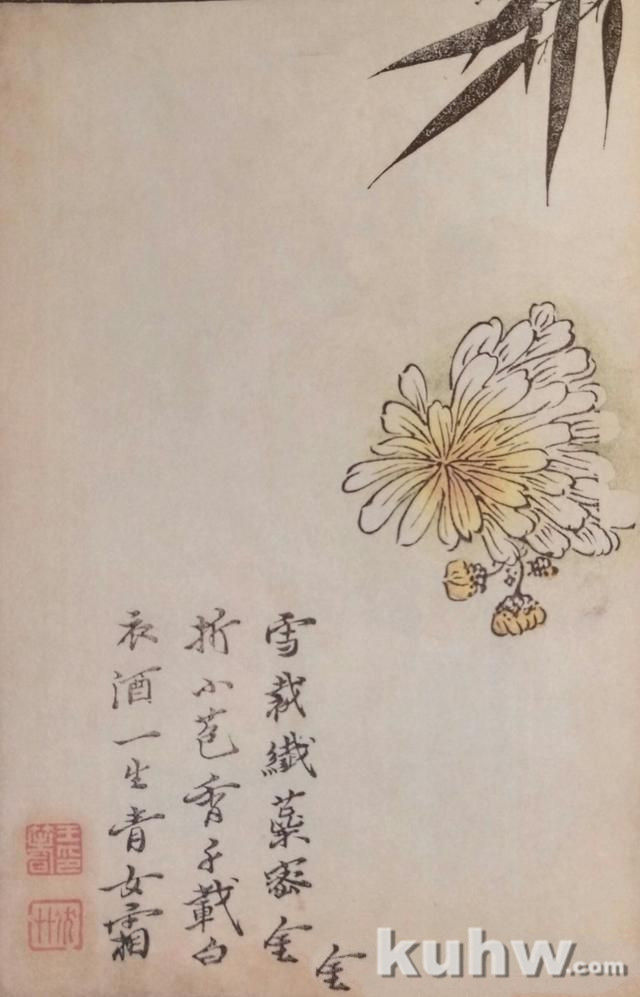 雪裁纖蘂密金
折小苞香千載白
衣酒一生青女霜
金
kuhw.com